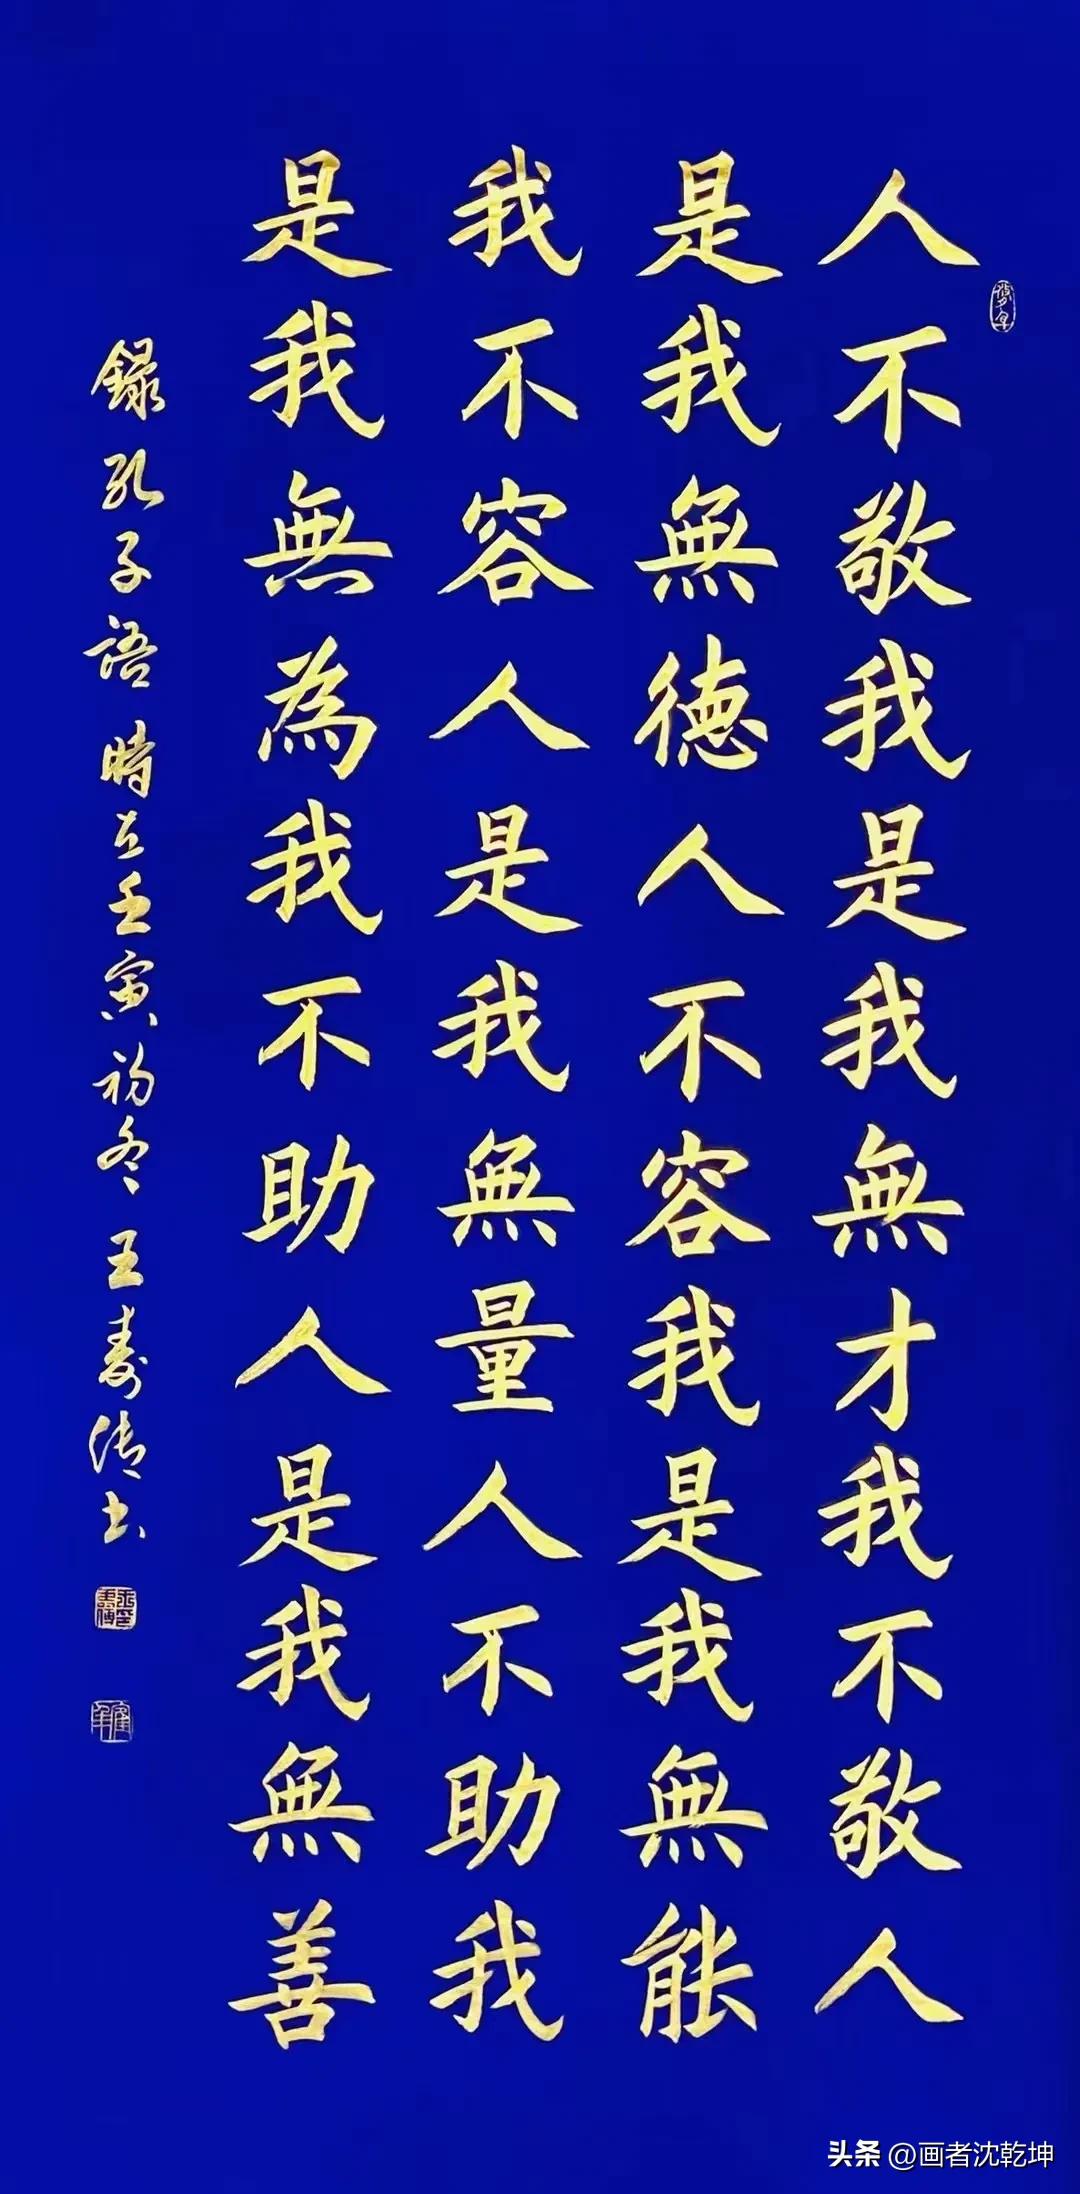 人不敬我是我無才我不敬人
是我無德人不容我是我無能
我不容人是我無量人不助我
是我無為我不助人是我無善
錄孔子語時在壬寅初冬王壽傳書
头条 @画者沈乾坤